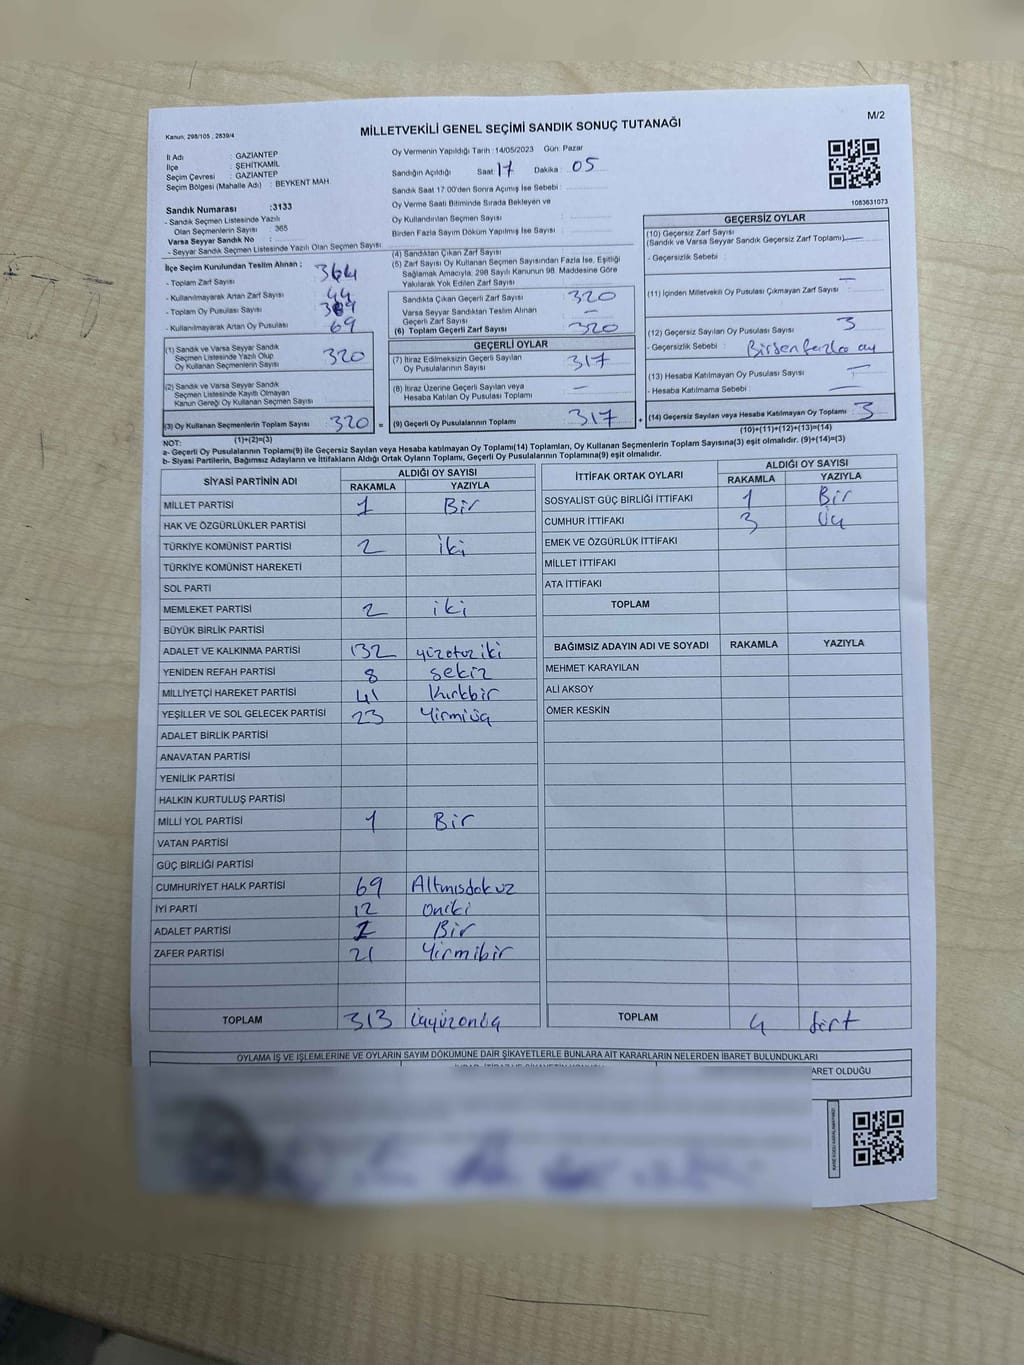 Kanun, 298/105 , 2839/4
MİLLETVEKİLİ GENEL SEÇİMİ SANDIK SONUÇ TUTANAĞI
M/2
İl Adı : GAZİANTEP
İlçe : ŞEHİTKAMİL
Seçim Çevresi : GAZİANTEP
Seçim Bölgesi (Mahalle Adı) : BEYKENT MAH.
Oy Vermenin Yapıldığı Tarih : 14/05/2023 Gün: Pazar
Sandığın Açıldığı Saat 17 Dakika : 05
Sandık Saat 17:00'den Sonra Açımış İse Sebebi :
Oy Verme Saati Bitiminde Sırada Bekleyen ve
Oy Kullandırılan Seçmen Sayısı :
Birden Fazla Sayım Döküm Yapılmış İse Sayısı :
1083631073
Sandık Numarası :3133
- Sandık Seçmen Listesinde Yazılı
Olan Seçmenlerin Sayısı : 365
Varsa Seyyar Sandık No :
- Seyyar Sandık Seçmen Listesinde Yazılı Olan Seçmen Sayısı
İlçe Seçim Kurulundan Teslim Alınan ;
- Toplam Zarf Sayısı : 364
- Kullanılmayarak Artan Zarf Sayısı : 44
- Toplam Oy Pusulası Sayısı : 389
- Kullanılmayarak Artan Oy Pusulası : 69
(1) Sandık ve Varsa Seyyar Sandık
Seçmen Listesinde Yazılı Olup
Oy Kullanan Seçmenlerin Sayısı : 320
(2) Sandık ve Varsa Seyyar Sandık
Seçmen Listesinde Kayıtlı Olmayan
Kanun Gereği Oy Kullanan Seçmen Sayısı :
(3) Oy Kullanan Seçmenlerin Toplam Sayısı : 320
(1)+(2)=(3)
(4) Sandıktan Çıkan Zarf Sayısı :
(5) Zarf Sayısı Oy Kullanan Seçmen Sayısından Fazla İse, Eşitliği
Sağlamak Amacıyla, 298 Sayılı Kanunun 98. Maddesine Göre
Yakılarak Yok Edilen Zarf Sayısı :
Sandıkta Çıkan Geçerli Zarf Sayısı : 320
Varsa Seyyar Sandıktan Teslim Alınan
Geçerli Zarf Sayısı : –
(6) Toplam Geçerli Zarf Sayısı : 320
GEÇERLİ OYLAR
(7) İtiraz Edilmeksizin Geçerli Sayılan
Oy Pusulalarının Sayısı : 317
(8) İtiraz Üzerine Geçerli Sayılan veya
Hesaba Katılan Oy Pusulası Toplamı : –
= (9) Geçerli Oy Pusulalarının Toplamı : 317
GEÇERSİZ OYLAR
(10) Geçersiz Zarf Sayısı
(Sandık ve Varsa Seyyar Sandık Geçersiz Zarf Toplamı) –
- Geçersizlik Sebebi :
(11) İçinden Milletvekili Oy Pusulası Çıkmayan Zarf Sayısı : –
(12) Geçersiz Sayılan Oy Pusulası Sayısı : 3
- Geçersizlik Sebebi : Birden fazla oy
(13) Hesaba Katılmayan Oy Pusulası Sayısı : –
- Hesaba Katılmama Sebebi : –
+ (14) Geçersiz Sayılan veya Hesaba Katılmayan Oy Toplamı : 3
(10)+(11)+(12)+(13)=(14)
NOT:
a- Geçerli Oy Pusulalarının Toplamı(9) ile Geçersiz Sayılan veya Hesaba katılmayan Oy Toplamı(14) Toplamları, Oy Kullanan Seçmenlerin Toplam Sayısına(3) eşit olmalıdır. (9)+(14)=(3)
b- Siyasi Partilerin, Bağımsız Adayların ve İttifakların Aldığı Ortak Oyların Toplamı, Geçerli Oy Pusulalarının Toplamına(9) eşit olmalıdır.
SİYASİ PARTİNİN ADI ALDIĞI OY SAYISI
RAKAMLA YAZIYLA
MİLLET PARTİSİ 1 Bir
HAK VE ÖZGÜRLÜKLER PARTİSİ
TÜRKİYE KOMÜNİST PARTİSİ 2 iki
TÜRKİYE KOMÜNİST HAREKETİ
SOL PARTİ
MEMLEKET PARTİSİ 2 iki
BÜYÜK BİRLİK PARTİSİ
ADALET VE KALKINMA PARTİSİ 132 yüzotuziki
YENİDEN REFAH PARTİSİ 8 sekiz
MİLLİYETÇİ HAREKET PARTİSİ 41 Kırkbir
YEŞİLLER VE SOL GELECEK PARTİSİ 23 Yirmiüç
ADALET BİRLİK PARTİSİ
ANAVATAN PARTİSİ
YENİLİK PARTİSİ
HALKIN KURTULUŞ PARTİSİ
MİLLİ YOL PARTİSİ 1 Bir
VATAN PARTİSİ
GÜÇ BİRLİĞİ PARTİSİ
CUMHURİYET HALK PARTİSİ 69 Altmışdokuz
İYİ PARTİ 12 Oniki
ADALET PARTİSİ 1 Bir
ZAFER PARTİSİ 21 Yirmibir
TOPLAM 313 Üçyüzonüç
İTTİFAK ORTAK OYLARI ALDIĞI OY SAYISI
RAKAMLA YAZIYLA
SOSYALİST GÜÇ BİRLİĞİ İTTİFAKI 1 Bir
CUMHUR İTTİFAKI 3 Üç
EMEK VE ÖZGÜRLÜK İTTİFAKI
MİLLET İTTİFAKI
ATA İTTİFAKI
TOPLAM
BAĞIMSIZ ADAYIN ADI VE SOYADI RAKAMLA YAZIYLA
MEHMET KARAYILAN
ALİ AKSOY
ÖMER KESKİN
TOPLAM 4 dört
OYLAMA İŞ VE İŞLEMLERİNE VE OYLARIN SAYIM DÖKÜMÜNE DAİR ŞİKAYETLERLE BUNLARA AİT KARARLARIN NELERDEN İBARET BULUNDUKLARI
ARET OLDUĞU